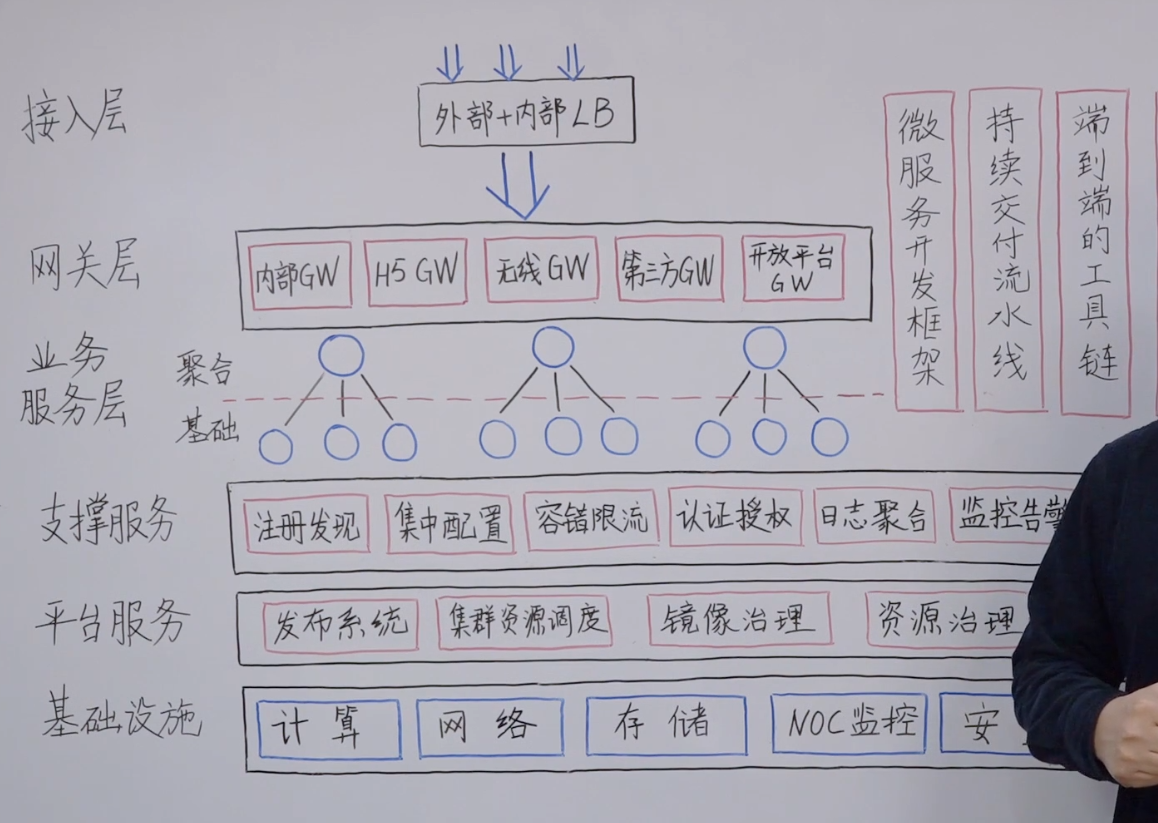 接入层
外部+内部LB
网关层
内部GW
H5 GW
无线GW
第三方GW
开放平台
GW
业务
服务层
聚合
基础
支撑服务
注册发现
集中配置
容错限流
认证授权
日志聚合
监控告警
平台服务
发布系统
集群资源调度
镜像治理
资源治理
基础设施
计算
网络
存储
NOC监控
安
微服务开发框架
持续交付流水线
端到端的工具链